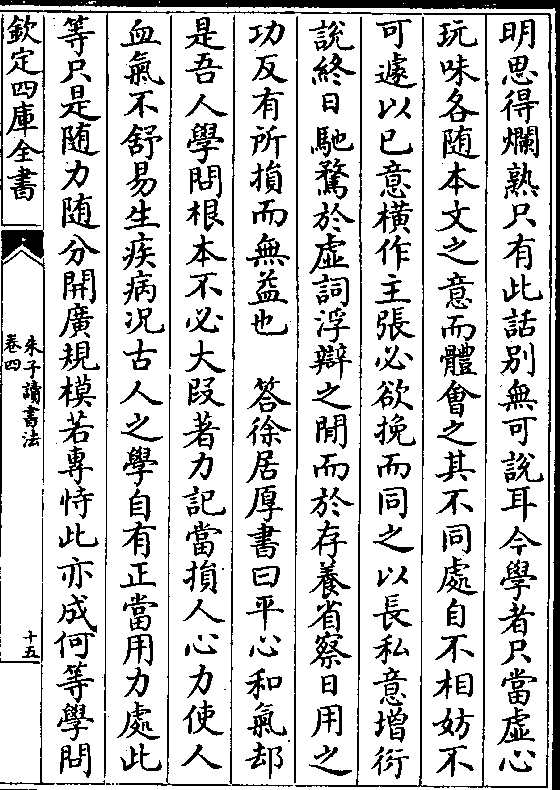 明思得爛熟只有此話别無可說耳今學者只當虛心
玩味各隨本文之意而體會之其不同處自不相妨不
可遽以已意橫作主張必欲挽而同之以長私意增衍
說終日馳騖於虛詞浮辯之閒而於存養省察日用之
功反有所損而無益也　答徐居厚書曰平心和氣却
是吾人學問根本不必大段著力記當損人心力使人
血氣不舒易生疾病况古人之學自有正當用力處此
等只是随力随分開廣規模若專恃此亦成何等學問
欽定四庫全書
朱子讀書法
卷四
十五